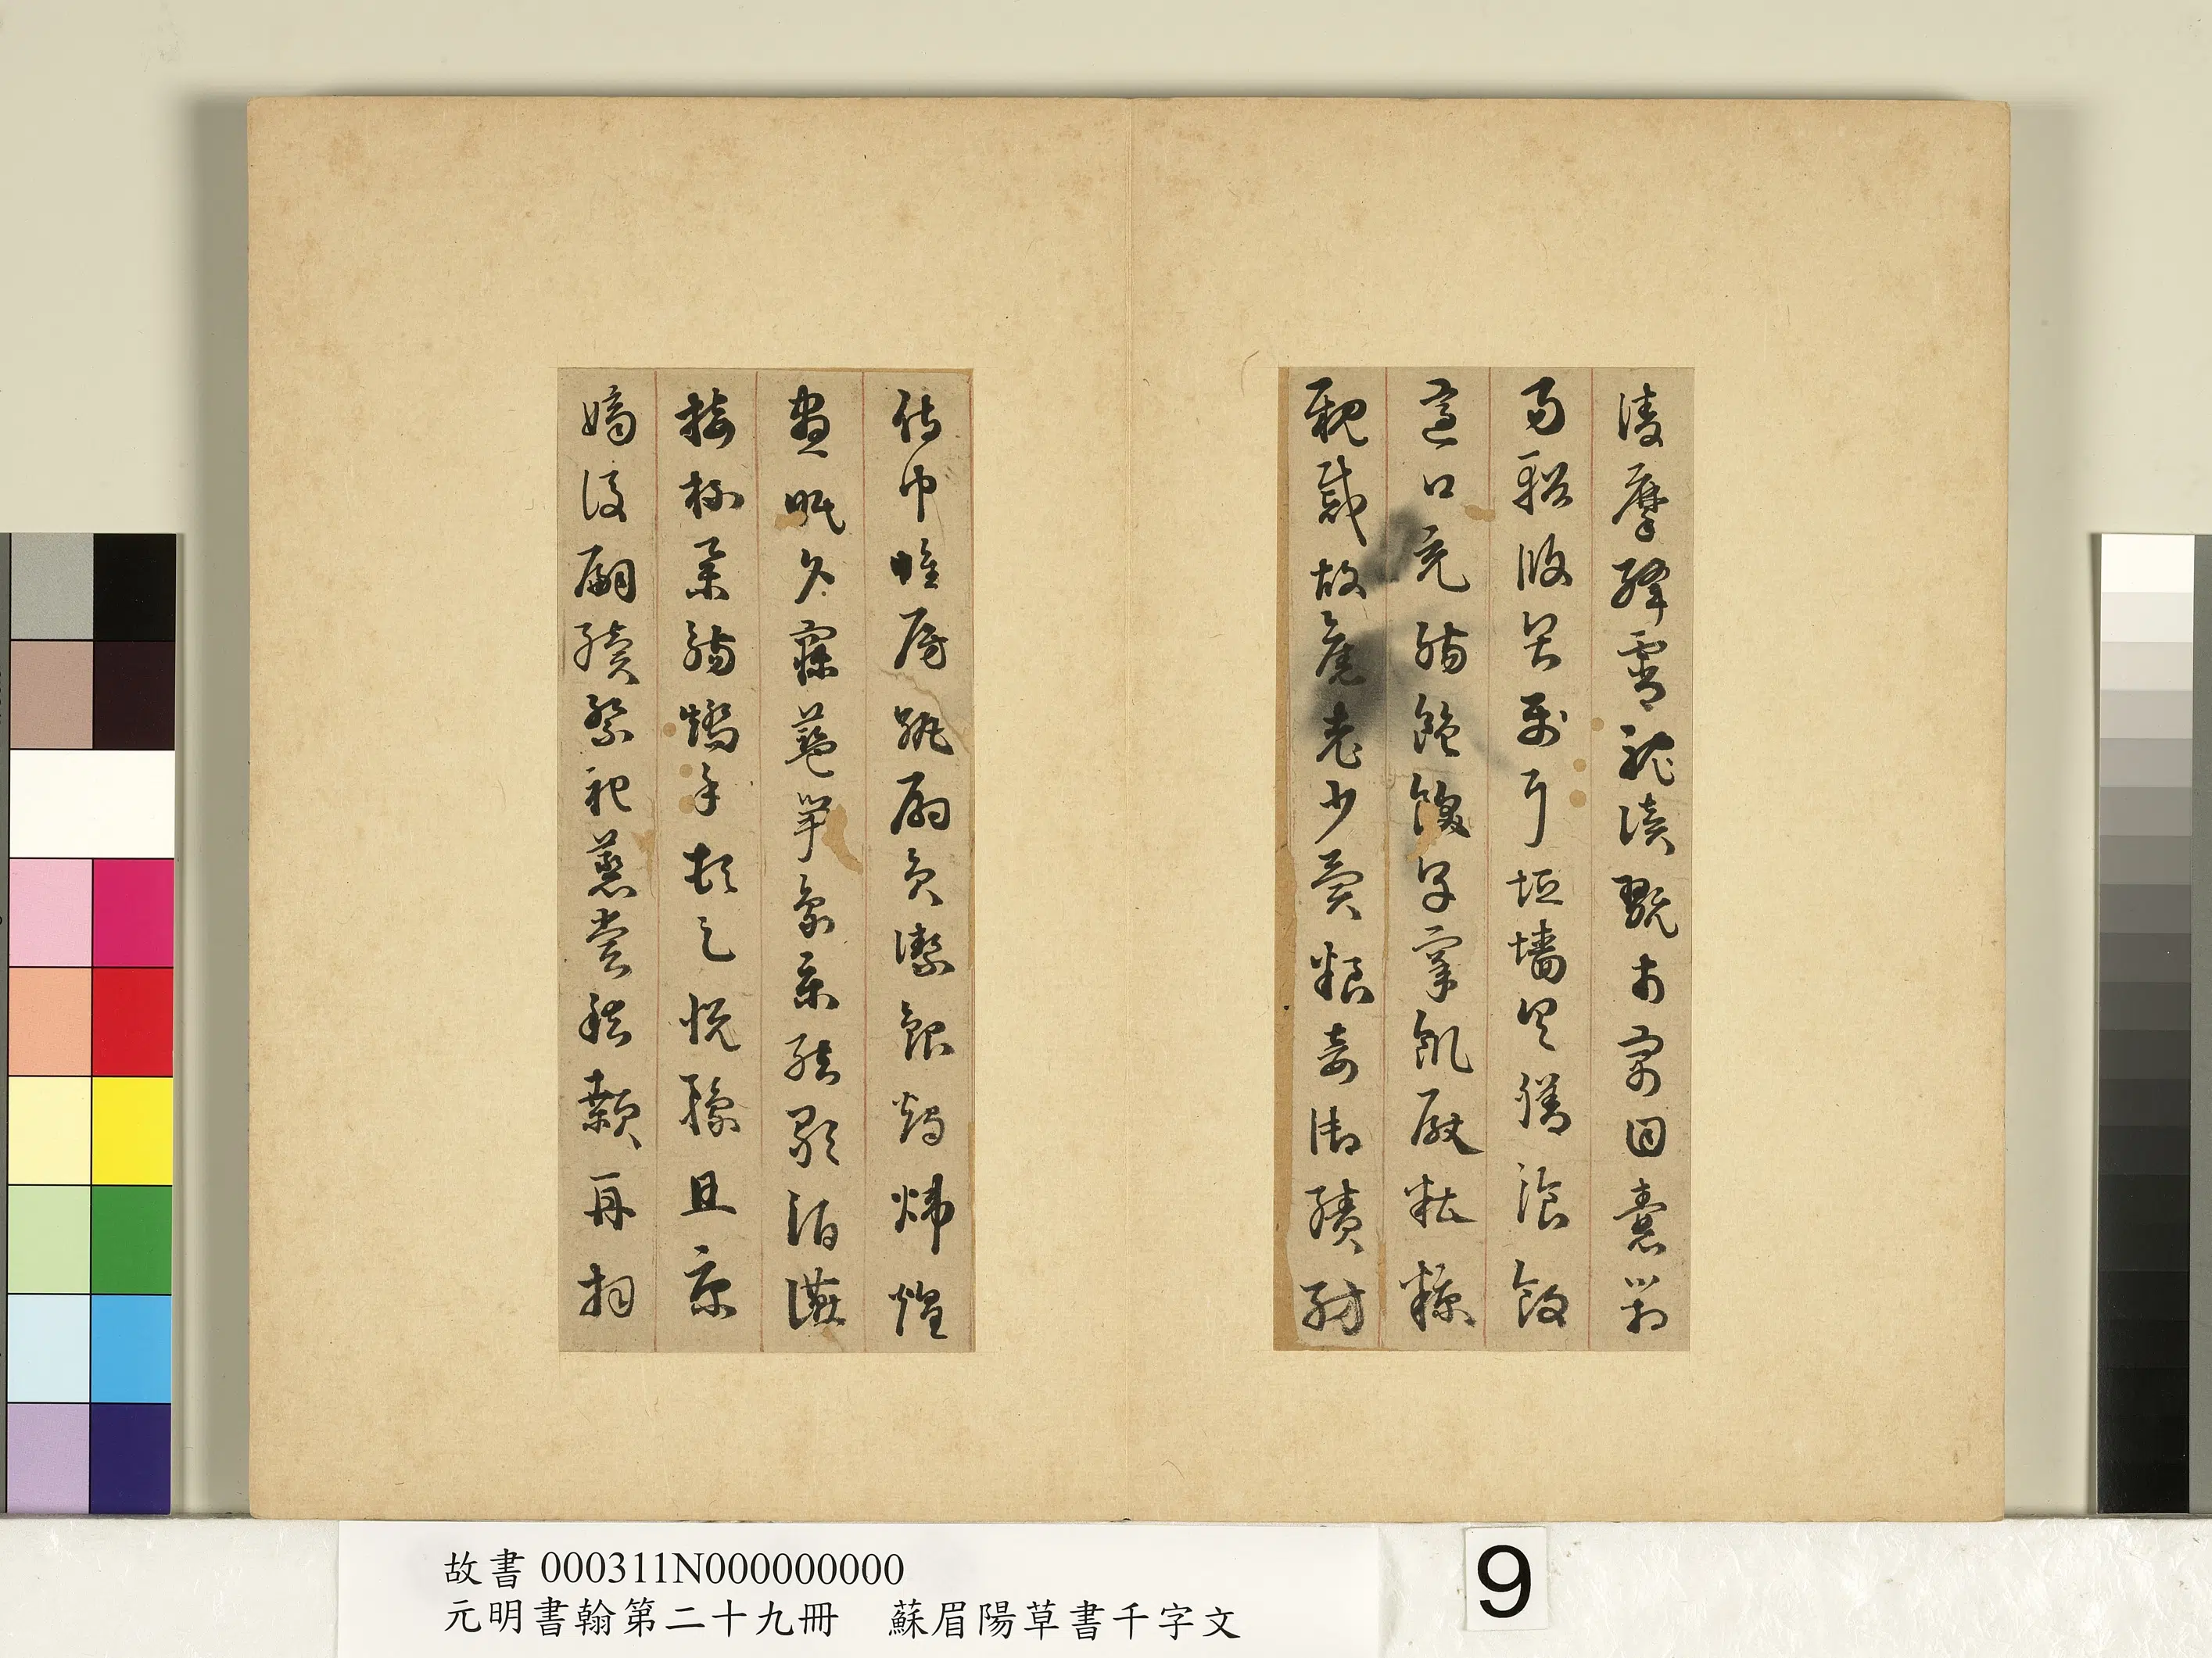 凌摩絳霄耽讀翫市寓目囊箱
易輶攸畏屬耳垣墻具膳飡飯
適口充腸飽飫享宰飢厭糟糠
親戚故舊老少異糧妾御績紡
侍巾帷房紈扇員潔銀燭煒煌
晝眠夕寐藍筍象床絃歌酒讌
接杯舉觴矯手頓足悅豫且康
嫡後嗣續祭祀蒸嘗稽顙再拜
故書 000311N000000000
元明書翰第二十九冊 蘇眉陽草書千字文
9